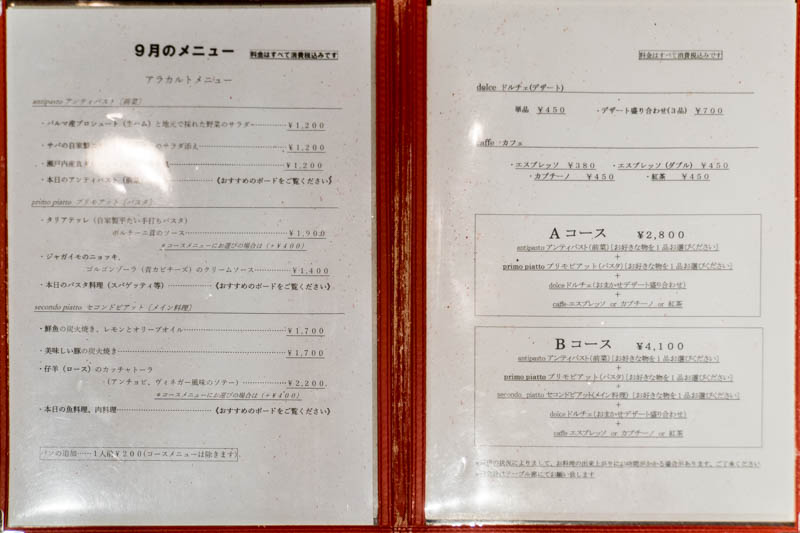 9月のメニュー 料金はすべて消費税込みです
アラカルトメニュー
antipasto アンティパスト〔前菜〕
・パルマ産プロシュート(生ハム)と地元で採れた野菜のサラダ ¥1,200
・サバの自家製 のサラダ添え ¥1,200
・瀬戸内産真 ¥1,200
・本日のアンティパスト(前菜 《おすすめのボードをご覧ください》
primo piatto プリモアット〔パスタ〕
・タリアテッレ(自家製平たい手打ちパスタ)
ポルチーニ茸のソース ¥1,900
※コースメニューにお選びの場合は(+¥400)
・ジャガイモのニョッキ、
ゴルゴンゾーラ(青カビチーズ)のクリームソース ¥1,400
・本日のパスタ料理(スパゲッティ等) 《おすすめのボードをご覧ください》
secondo piatto セコンドピアット〔メイン料理〕
・鮮魚の炭火焼き、レモンとオリーブオイル ¥1,700
・美味しい豚の炭火焼き ¥1,700
・仔羊(ロース)のカッチャトーラ
(アンチョビ、ヴィネガー風味のソテー) ¥2,200
※コースメニューにお選びの場合は(+¥400)
・本日の魚料理、肉料理 《おすすめのボードをご覧ください》
パンの追加……1人前¥200(コースメニューは除きます)
料金はすべて消費税込みです
dolce ドルチェ(デザート)
単品 ¥450 ・デザート盛り合わせ(3品) ¥700
caffe カフェ
・エスプレッソ ¥380 ・エスプレッソ(ダブル) ¥450
・カプチーノ ¥450 ・紅茶 ¥450
Aコース ¥2,800
antipasto アンティパスト(前菜)[お好きな物を1品お選びください]
+
primo piatto プリモピアット(パスタ)[お好きな物を1品お選びください]
+
dolce ドルチェ(おまかせデザート盛り合わせ)
+
caffe エスプレッソ or カプチーノ or 紅茶
Bコース ¥4,100
antipasto アンティパスト(前菜)[お好きな物を1品お選びください]
+
primo piatto プリモピアット(パスタ)[お好きな物を1品お選びください]
+
secondo piatto セコンドピアット(メイン料理)[お好きな物を1品お選びください]
+
dolce ドルチェ(おまかせデザート盛り合わせ)
+
caffe エスプレッソ or カプチーノ or 紅茶
の状況によりまして、お料理の出来上がりにお時間がかかる場合があります。ご了承ください
はテーブル席にてお願い致します